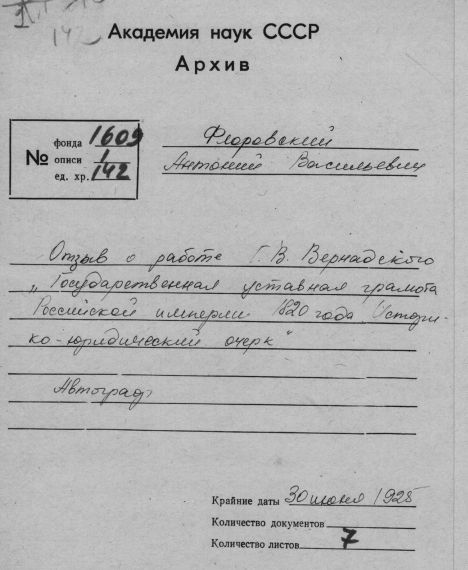 142
Академия наук СССР
Архив
№ фонда 1609
описи 1
ед. хр. 142
Флоровский
Антоний Васильевич
Отзыв о работе Г. В. Вернадского
„Государственная уставная грамота
Российской империи 1820 года. Истори-
ко-юридический очерк"
Автограф
Крайние даты 30 июня 1925
Количество документов
Количество листов 7